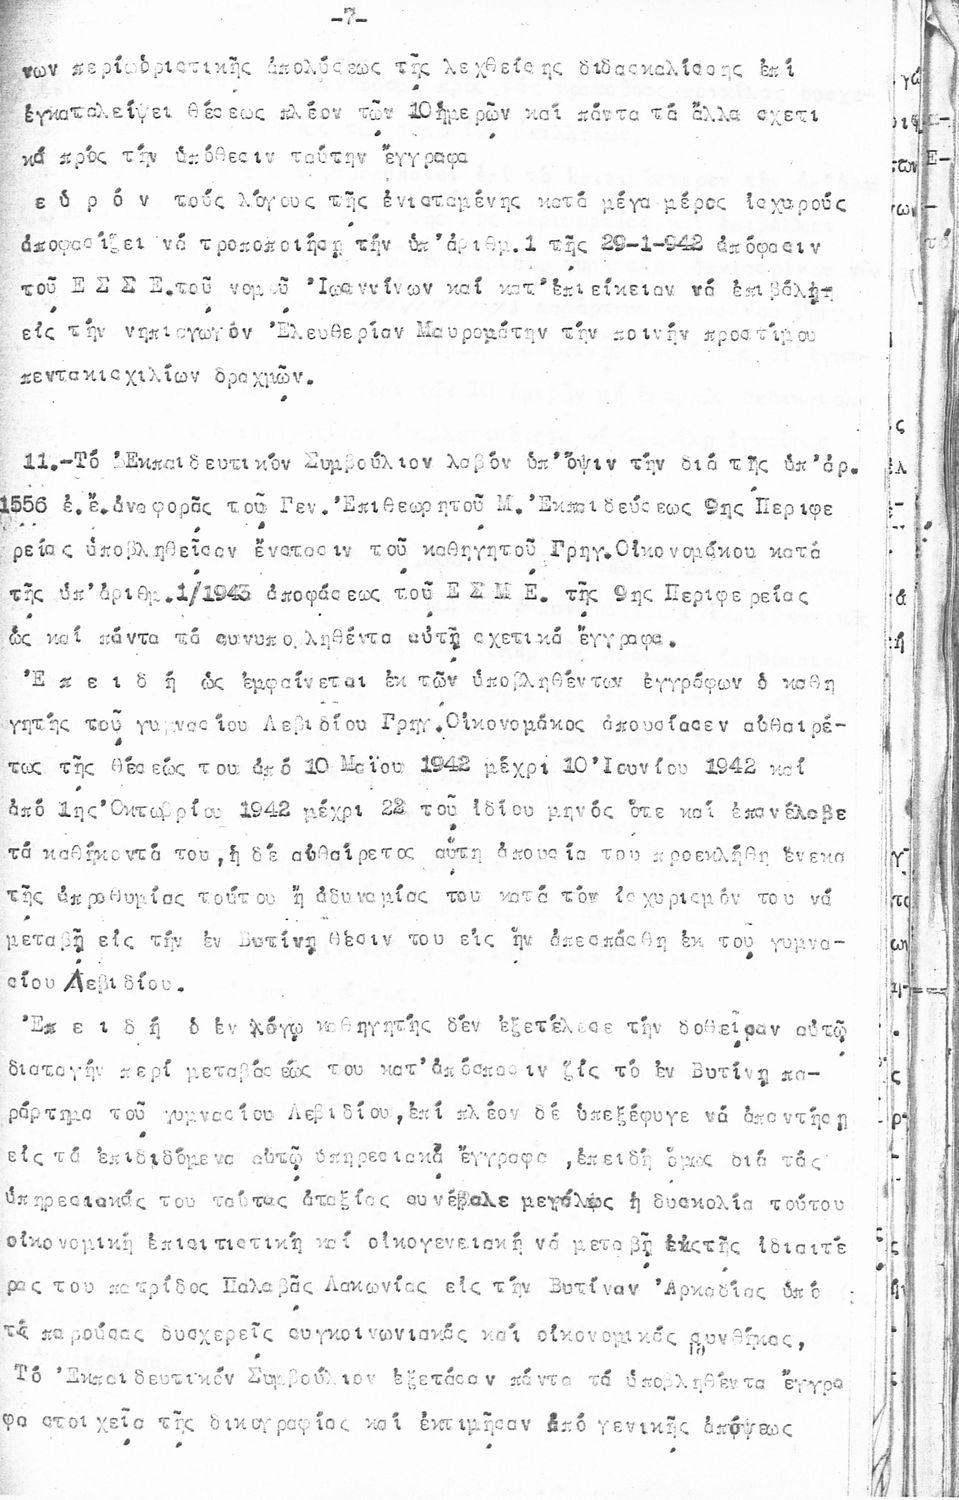 -7-
νων περίωδριστικῆς ἀπολύσεως τῆς λεχθείσης διδασκαλίσσης ἐπί
ἐγκαταλείψει θέσεως πλέον τῶν 10 ἡμερῶν καί πάντα τά ἄλλα σχετι
κά πρός τήν ὑπόθεσιν ταύτην ἔγγραφα
ε ὑ ρ ό ν τούς λόγους τῆς ἐνισταμένης κατά μέγα μέρος ἰσχυρούς
ἀποφασίζει νά τροποποιήσῃ τήν ὑπ'ἀριθμ.1 τῆς 29-1-942 ἀπόφασιν
τοῦ Ε Σ Σ Ε.τοῦ νομοῦ Ἰωαννίνων καί κατ'ἐπιείκειαν νά ἐπιβάλῃ
εἰς τήν νηπιαγωγόν Ἐλευθερίαν Μαυρομάτην τήν ποινήν προστίμου
πεντακισχιλίων δραχμῶν.
11.-Τό Ἐκπαιδευτικόν Συμβούλιον λαβόν ὑπ'ὄψιν τήν διά τῆς ὑπ'ἀρ.
1556 ἐ.ἔ.ἀναφορᾶς τοῦ Γεν.Ἐπιθεωρητοῦ Μ.Ἐκπαιδεύσεως 9ης Περιφε
ρείας ὑποβληθεῖσαν ἔνστασιν τοῦ καθηγητοῦ Γρηγ.Οἰκονομάκου κατά
τῆς ὑπ'ἀριθμ.1/1943 ἀποφάσεως τοῦ Ε Σ Μ Ε. τῆς 9ης Περιφερείας
ὡς καί πάντα τά συνυποβληθέντα αὐτῇ σχετικά ἔγγραφα.
Ἐ π ε ι δ ή ὡς ἐμφαίνεται ἐκ τῶν ὑποβληθέντων ἐγγράφων ὁ καθη
γητής τοῦ γυμνασίου Λεβιδίου Γρηγ.Οἰκονομάκος ἀπουσίασεν αὐθαιρέ-
τως τῆς θέσεώς του ἀπό 10 Μαϊου 1942 μέχρι 10 Ἰουνίου 1942 καί
ἀπό 1ης Ὀκτωβρίου 1942 μέχρι 22 τοῦ ἰδίου μηνός ὅτε καί ἐπανέλαβε
τά καθήκοντά του,ἡ δέ αὐθαίρετος αὕτη ἀπουσία του προεκλήθη ἕνεκα
τῆς ἀπροθυμίας τούτου ἤ ἀδυναμίας του κατά τόν ἰσχυρισμόν του νά
μεταβῇ εἰς τήν ἐν Βυτίνῃ θέσιν του εἰς ἥν ἀπεσπάσθη ἐκ τοῦ γυμνα-
σίου Λεβιδίου.
Ἐπ ε ι δ ή ὁ ἐν λόγῳ καθηγητής δέν ἐξετέλεσε τήν δοθεῖσαν αὐτῷ
διαταγήν περί μεταβάσεώς του κατ'ἀπόσπασιν ζίς τό ἐν Βυτίνῃ πα-
ράρτημα τοῦ γυμνασίου Λεβιδίου,ἐπί πλέον δέ ὑπεξέφυγε νά ἀπαντήσῃ
εἰς τά ἐπιδιδόμενα αὐτῷ ὑπηρεσιακά ἔγγραφα ,ἐπειδή ὅμως διά τάς
ὑπηρεσιακάς του ταύτας ἀταξίας συνέβαλε μεγάλως ἡ δυσκολία τούτου
οἰκονομική ἐπισιτιστική καί οἰκογενειακή νά μεταβῇ ἐκ τῆς ἰδιαιτέ
ρας του πατρίδος Παλαβᾶς Λακωνίας εἰς τήν Βυτίναν Ἀρκαδίας ὑπό
τά παρούσας δυσχερεῖς συγκοινωνιακάς καί οἰκονομικάς συνθήκας,
Τό Ἐκπαιδευτικόν Συμβούλιον ἐξετάσαν πάντα τά ὑποβληθέντα ἔγγρα
φα στοιχεῖα τῆς δικογραφίας καί ἐκτιμῆσαν ἀπό γενικῆς ἀπόψεως